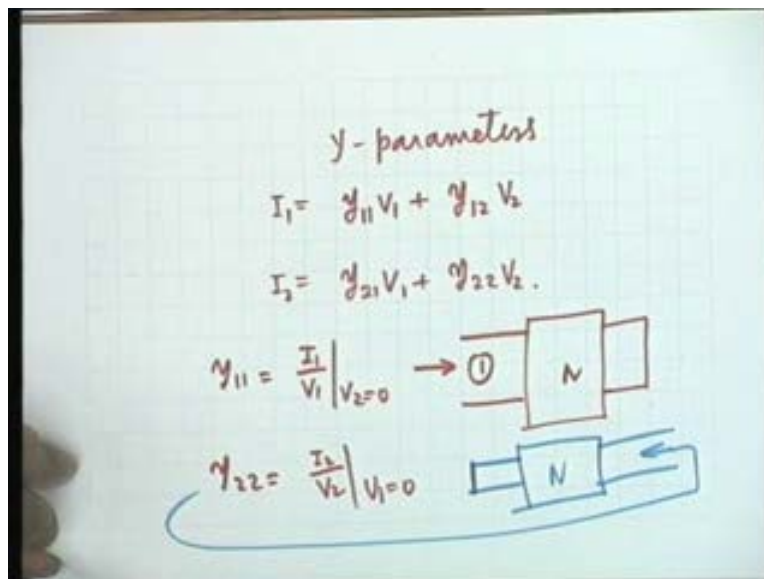 y-parameters
I₁= y₁₁V₁ + y₁₂ V₂
I₂= y₂₁V₁ + y₂₂V₂.
y₁₁ = I₁/V₁ |V₂=0 → ① N
y₂₂= I₂/V₂ |V₁=0 N